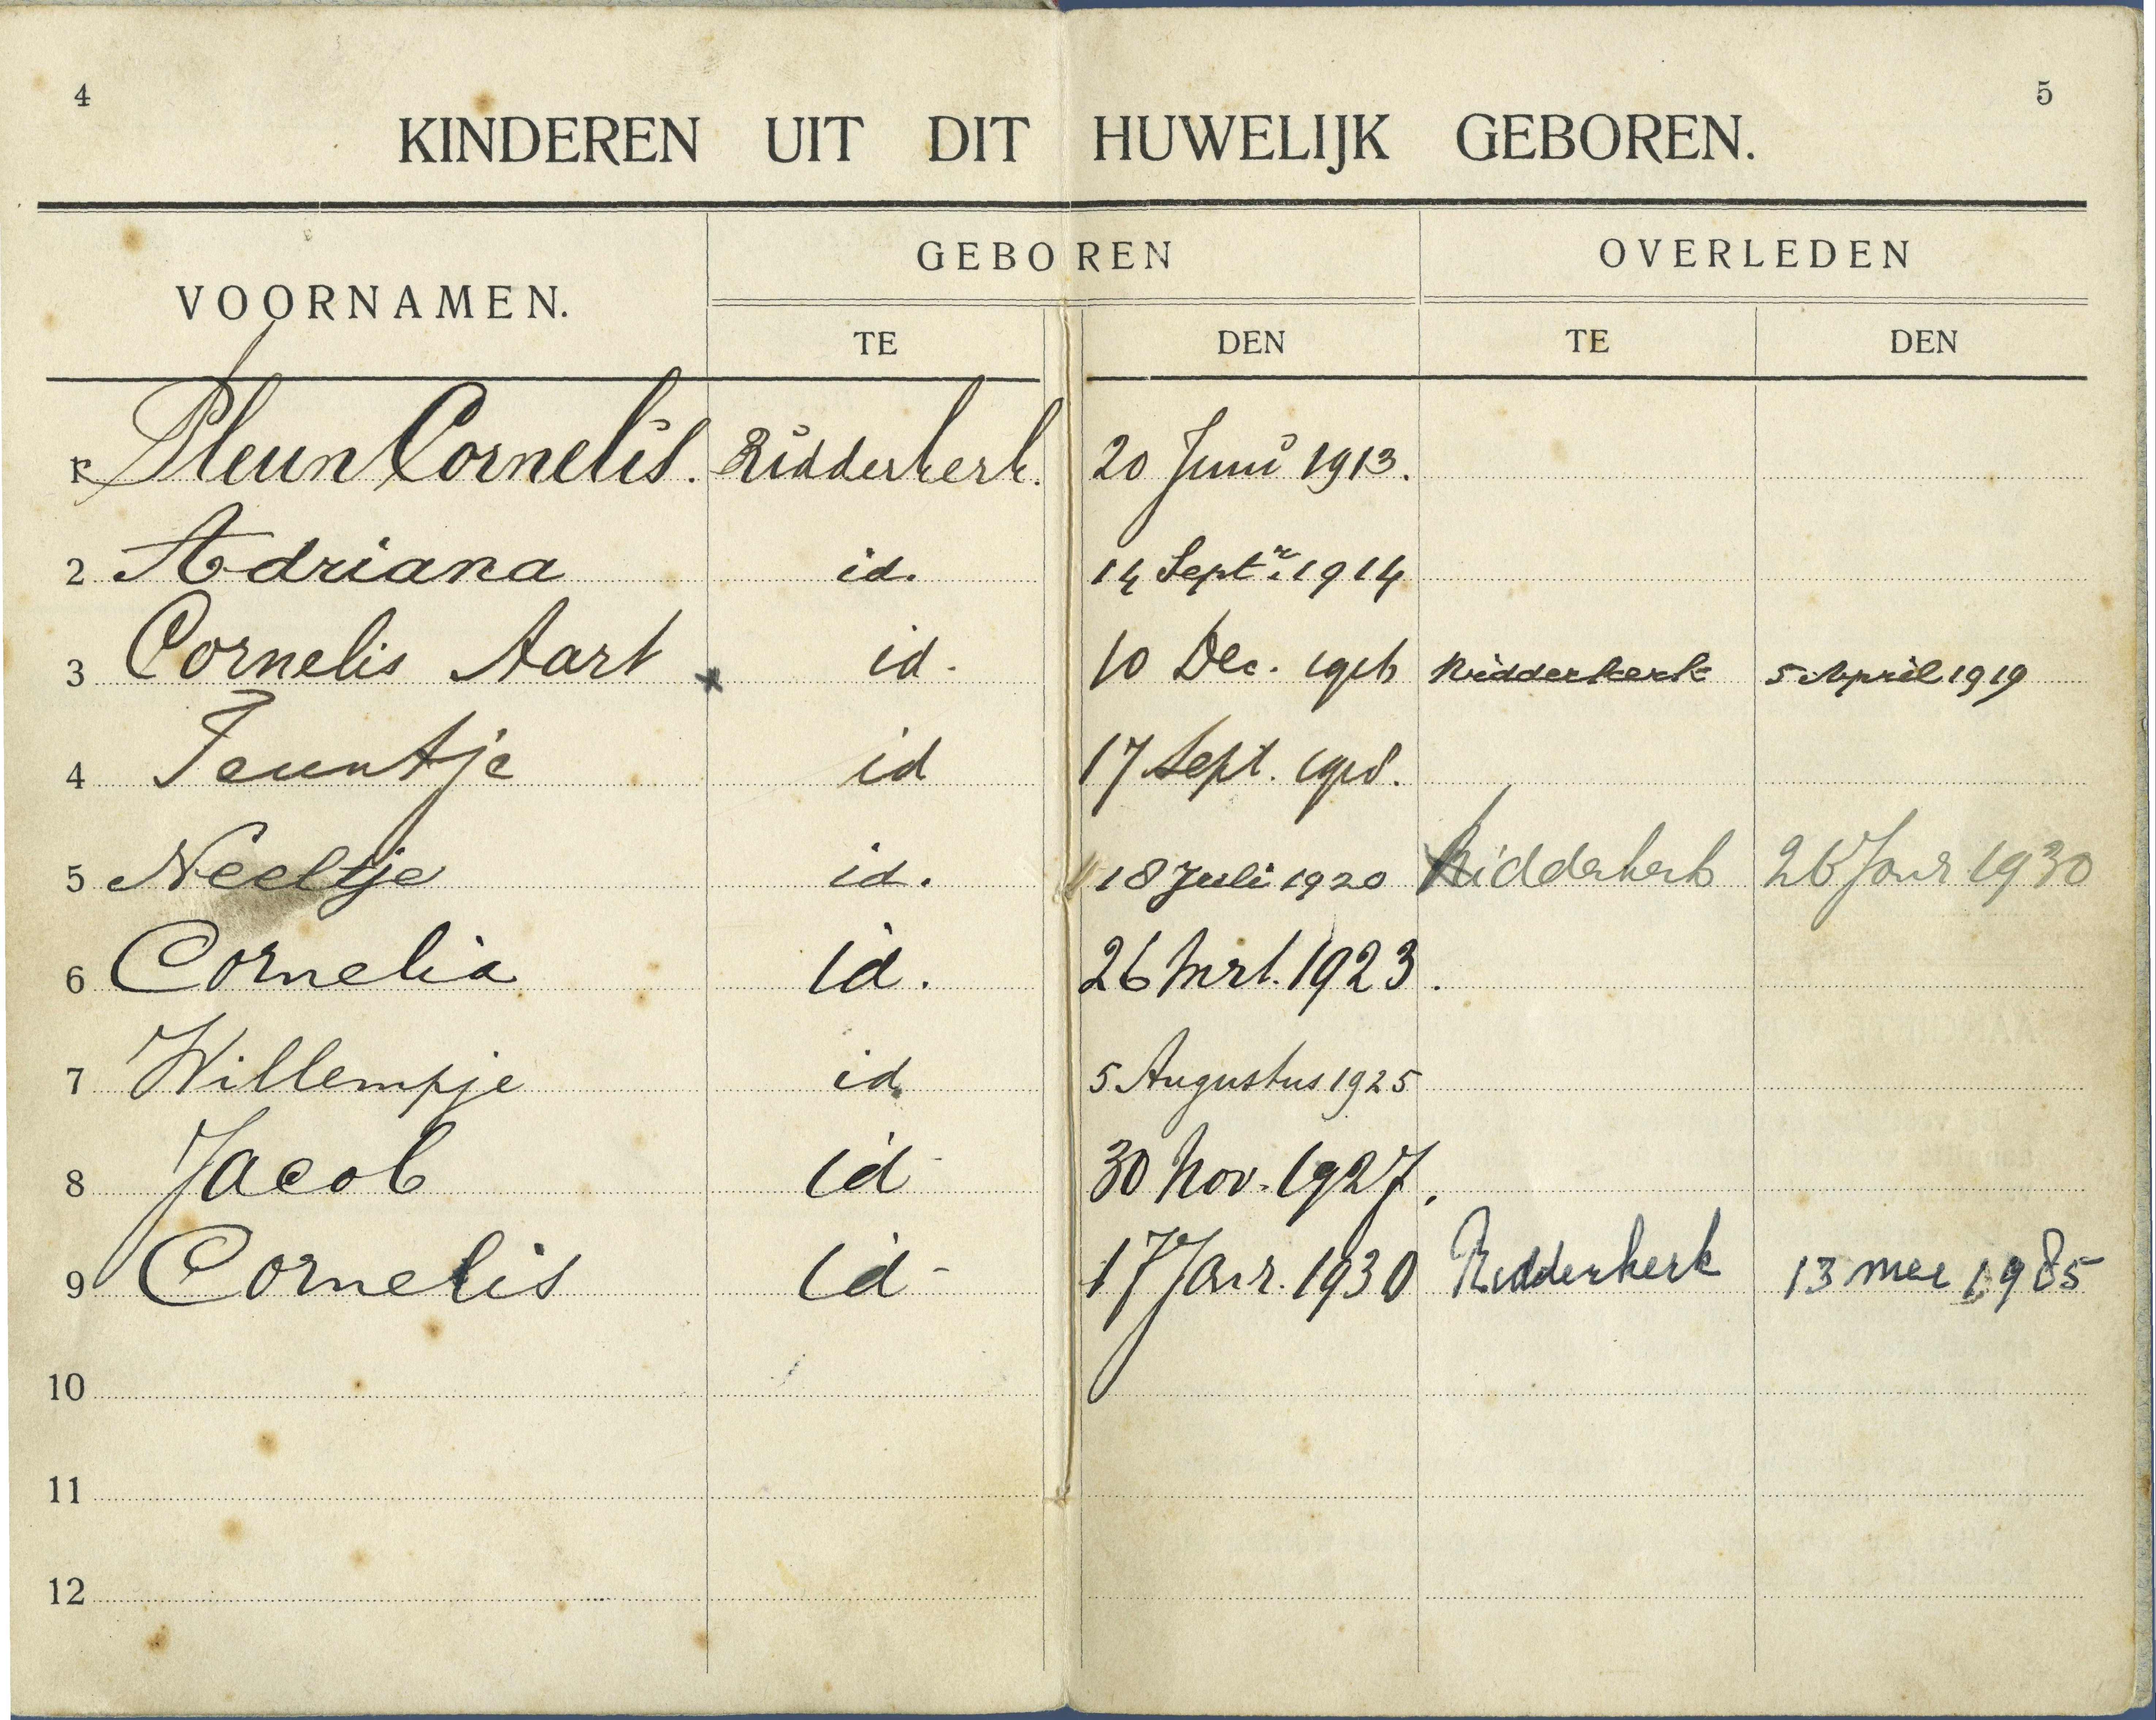 4 5
KINDEREN UIT DIT HUWELIJK GEBOREN.
VOORNAMEN. GEBOREN OVERLEDEN
TE DEN TE DEN
1 Pleun Cornelis. Ridderkerk. 20 Juni 1913.
2 Adriana id. 14 Septr. 1914
3 Cornelis Aart id. 10 Dec. 1916 Ridderkerk 5 April 1919
4 Teuntje id 17 Sept. 1918.
5 Neeltje id. 18 Juli 1920 Ridderkerk 26 Janr 1930
6 Cornelia id. 26 Mrt. 1923.
7 Willempje id 5 Augustus 1925
8 Jacob id- 30 Nov. 1927.
9 Cornelis id- 17 Janr. 1930 Ridderkerk 13 mei 1985
10
11
12